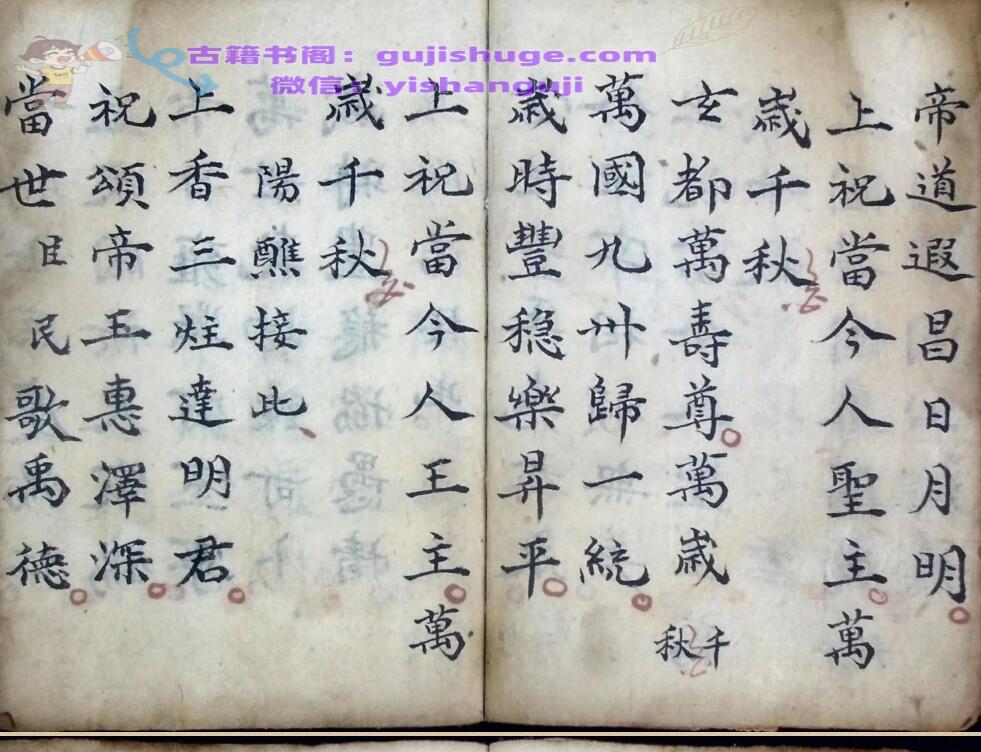 古籍书阁：gujishuge.com
微信：yishanguji
帝道遐昌日月明
上祝當今人聖主萬
歲千秋
玄都萬壽尊萬歲千秋
萬國九州歸一統
歲時豐稳樂昇平
上祝當今人王主萬
歲千秋
陽醮接此
上香三炷達明君
祝頌帝王惠澤深
當世臣民歌禹德